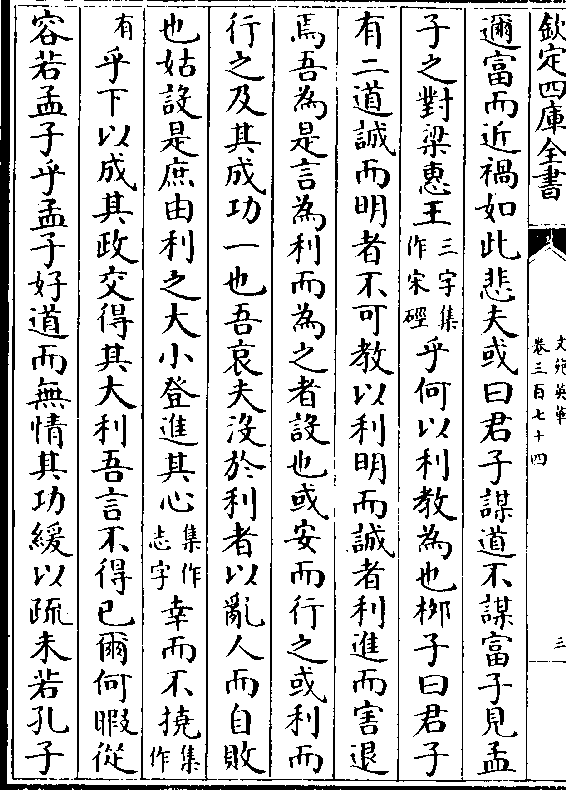 欽定四庫全書
文苑英華
卷三百七十四
三
邇富而近禍如此悲夫或曰君子謀道不謀富子見孟
子之對梁惠王三字集作宋硜乎何以利教為也栁子曰君子
有二道誠而明者不可教以利明而誠者利進而害退
焉吾為是言為利而為之者設也或安而行之或利而
行之及其成功一也吾哀夫沒於利者以亂人而自敗
也姑設是庶由利之大小登進其心集作志字幸而不撓集作
有乎下以成其政交得其大利吾言不得已爾何暇從
容若孟子乎孟子好道而無情其功緩以疏未若孔子